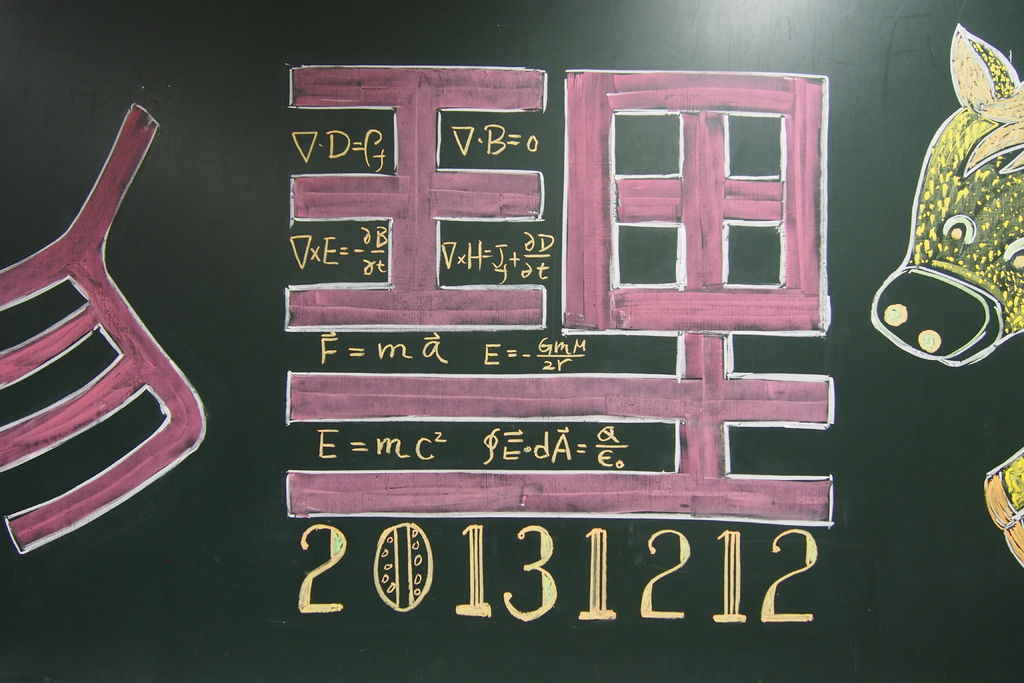 理
∇·D=ρ_f ∇·B=0
∇×E=-∂B/∂t ∇×H=J_f+∂D/∂t
F⃗=ma⃗ E=-GmM/2r
E=mc² ∮E⃗·dA⃗=Q/ε₀
20131212